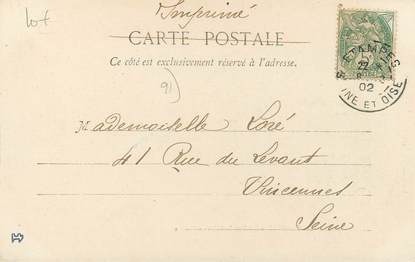 lot
Imprimé
CARTE POSTALE
Ce côté est exclusivement réservé à l'adresse.
ETAMPES
22
02
SEINE ET OISE
91)
Mademoiselle Loré
41 Rue du Levant
Vincennes
Seine